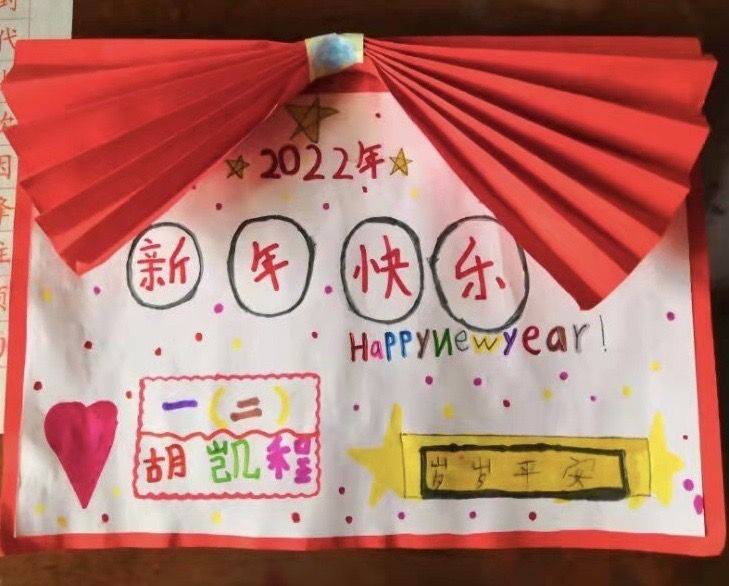 2022年
新年快乐
Happy New year!
一(二)
胡凯程
岁岁平安